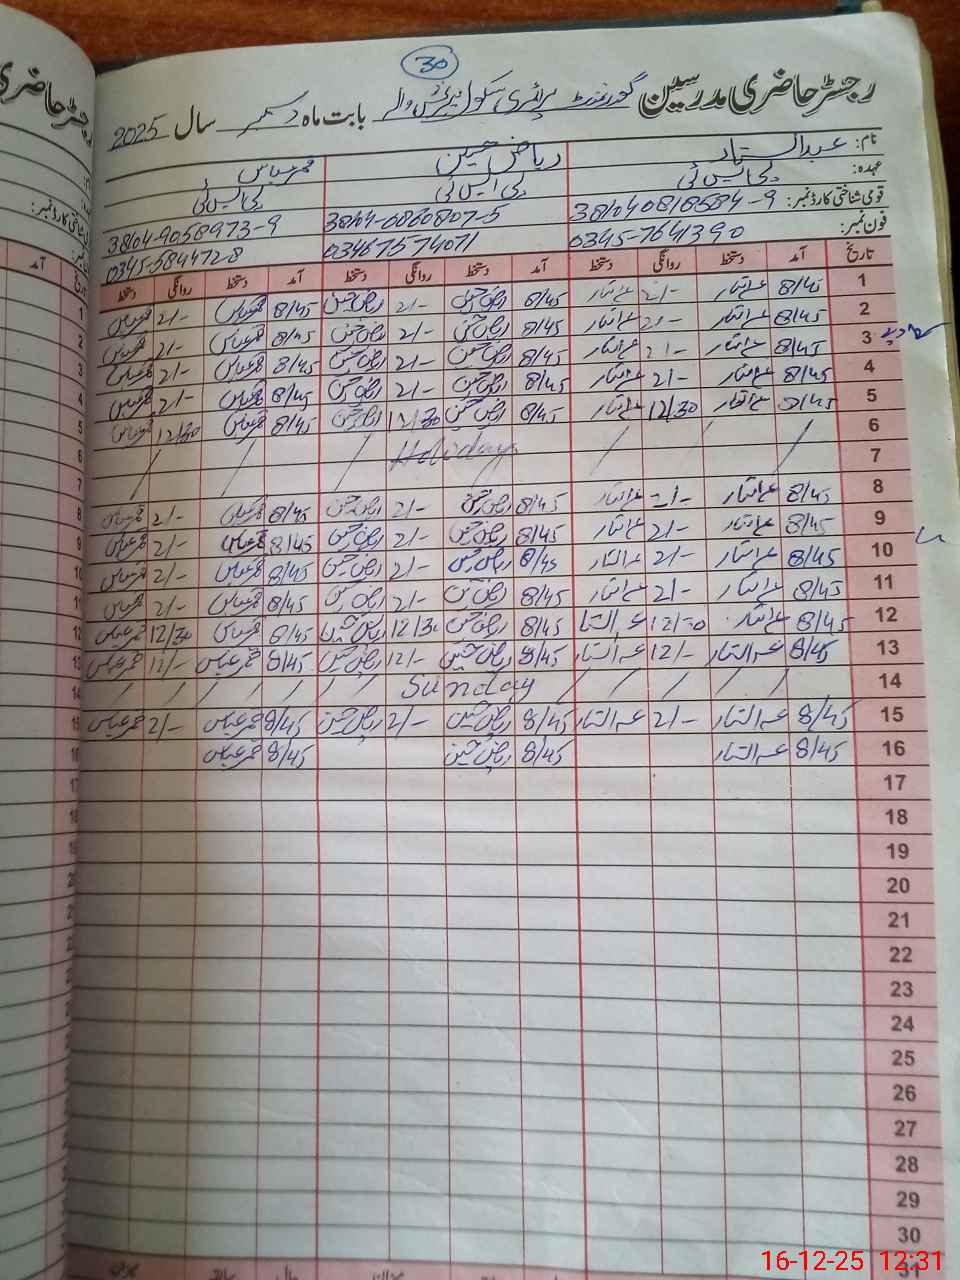 30
رجسٹر حاضری مدرسین گورنمنٹ پرائمری سکول والہ بابت ماہ دسمبر سال 2025
نام: عبدالستار ریاض حسین قمر عباس
عہدہ: پی ایس ٹی پی ایس ٹی پی ایس ٹی
قومی شناختی کارڈ نمبر: 38104-0818584-9 38104-0860807-5 38104-9058973-9
فون نمبر: 0345-7641390 03467574071 0345-584472-8
تاریخ آمد دستخط روانگی دستخط آمد دستخط روانگی دستخط آمد دستخط روانگی دستخط
1 8/45 عبدالستار 2/- عبدالستار 8/45 ریاض حسین 2/- ریاض حسین 8/45 قمر عباس 2/- قمر عباس
2 8/45 عبدالستار 2/- عبدالستار 8/45 ریاض حسین 2/- ریاض حسین 8/45 قمر عباس 2/- قمر عباس
3 8/45 عبدالستار 2/- عبدالستار 8/45 ریاض حسین 2/- ریاض حسین 8/45 قمر عباس 2/- قمر عباس
4 8/45 عبدالستار 2/- عبدالستار 8/45 ریاض حسین 2/- ریاض حسین 8/45 قمر عباس 2/- قمر عباس
5 8/45 عبدالستار 12/30 عبدالستار 8/45 ریاض حسین 12/30 ریاض حسین 8/45 قمر عباس 12/30 قمر عباس
6 Holiday
7
8 8/45 عبدالستار 2/- عبدالستار 8/45 ریاض حسین 2/- ریاض حسین 8/45 قمر عباس 2/- قمر عباس
9 8/45 عبدالستار 2/- عبدالستار 8/45 ریاض حسین 2/- ریاض حسین 8/45 قمر عباس 2/- قمر عباس
10 8/45 عبدالستار 2/- عبدالستار 8/45 ریاض حسین 2/- ریاض حسین 8/45 قمر عباس 2/- قمر عباس
11 8/45 عبدالستار 2/- عبدالستار 8/45 ریاض حسین 2/- ریاض حسین 8/45 قمر عباس 2/- قمر عباس
12 8/45 عبدالستار 12/30 عبدالستار 8/45 ریاض حسین 12/30 ریاض حسین 8/45 قمر عباس 12/30 قمر عباس
13 8/45 عبدالستار 12/- عبدالستار 8/45 ریاض حسین 12/- ریاض حسین 8/45 قمر عباس 12/- قمر عباس
14 Sunday
15 8/45 عبدالستار 2/- عبدالستار 8/45 ریاض حسین 2/- ریاض حسین 8/45 قمر عباس 2/- قمر عباس
16 8/45 عبدالستار 8/45 ریاض حسین 8/45 قمر عباس
17
18
19
20
21
22
23
24
25
26
27
28
29
30
31
16-12-25 12:31